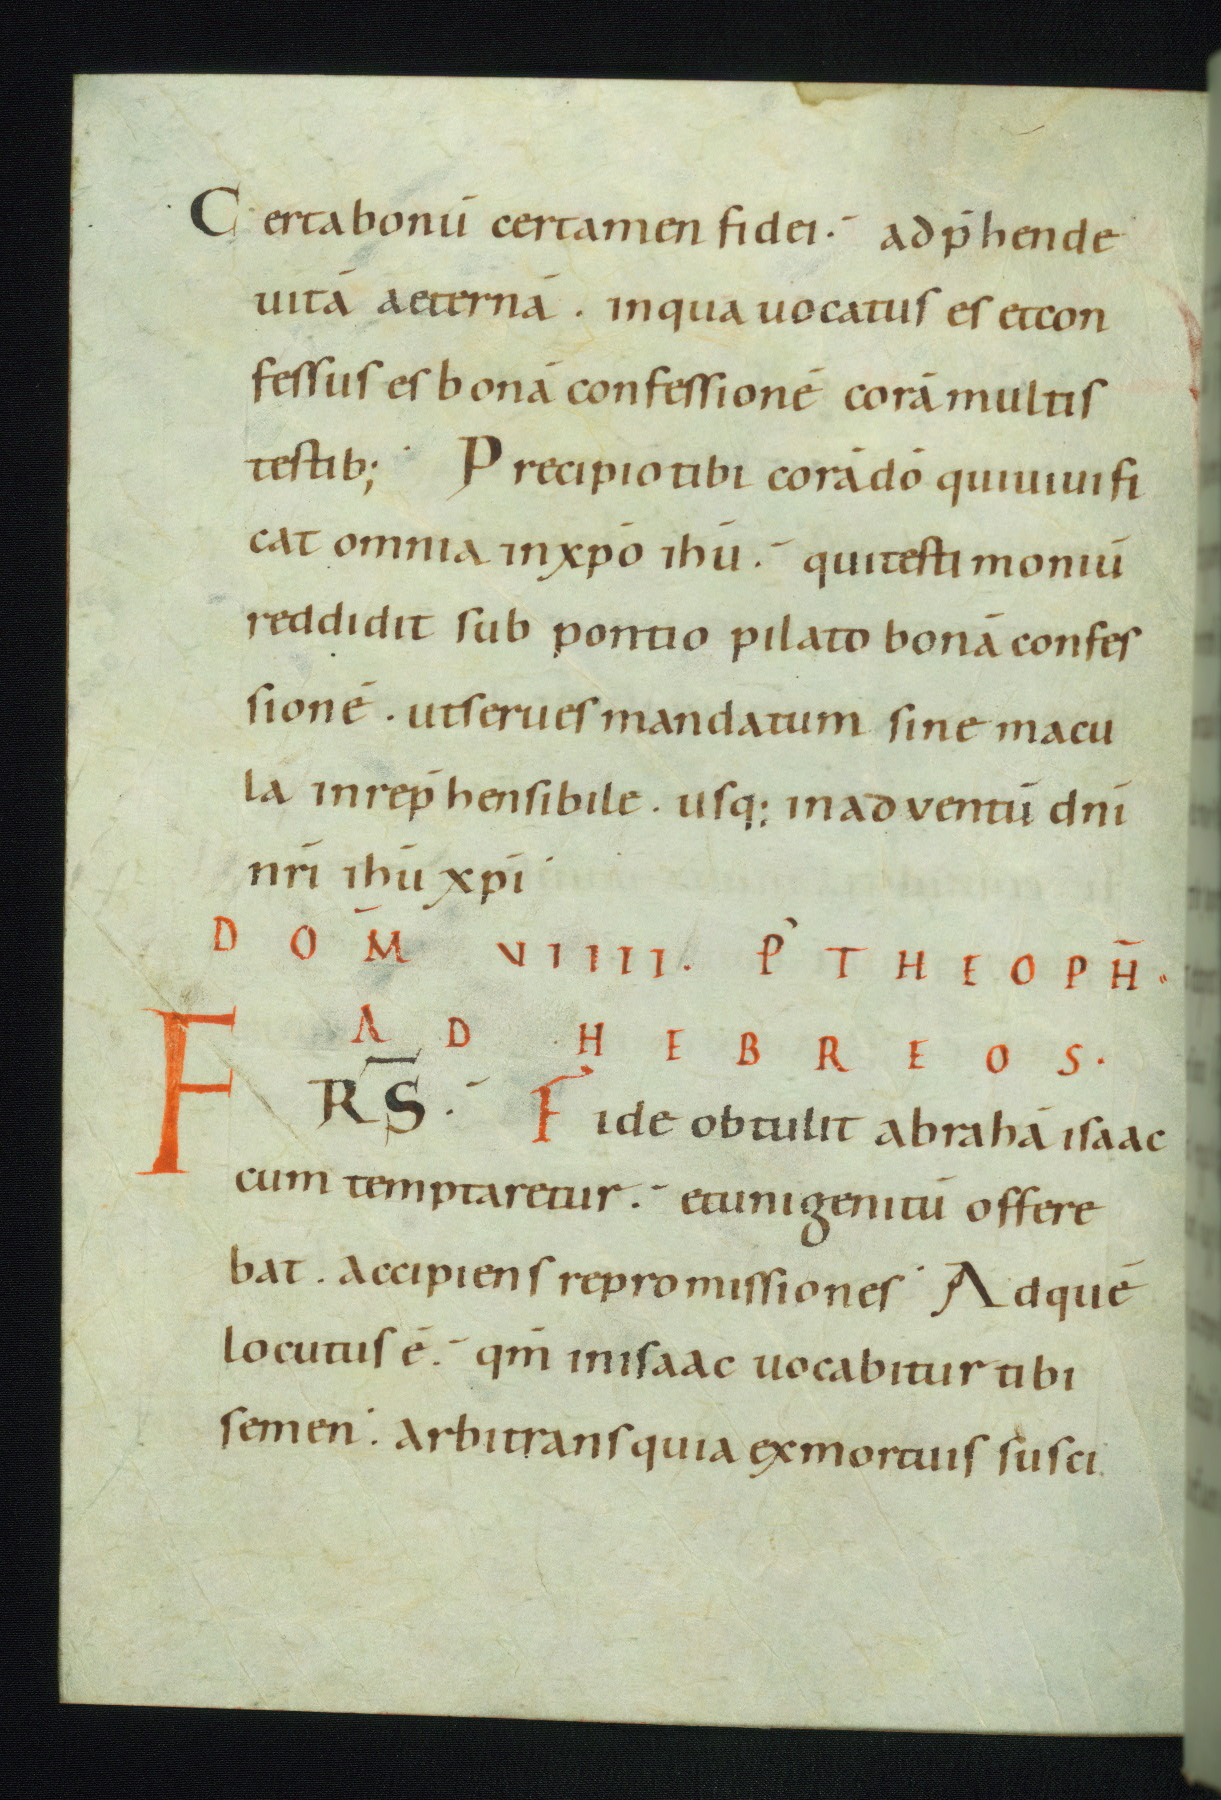 Certa bonū certamen fidei. adp̄hende
uitā aeternā. in qua uocatus es et con
fessus es bonā confessionē corā multis
testib; Precipio tibi corā dō qui uiuifi
cat omnia in xp̄o ih̄ū. qui testimoniū
reddidit sub pontio pilato bonā confes
sionē. ut serues mandatum sine macu
la inrep̄hensibile. usq; in adventū dn̄i
nr̄i ih̄ū xp̄i
DOM̄ VIIII. P' THEOPH̄.
AD HEBREOS.
FR̄S. Fide obtulit abrahā isaac
cum temptaretur. et unigenitū offere
bat. accipiens repromissiones Ad quē
locutus ē. qm̄ in isaac uocabitur tibi
semen. arbitrans quia ex mortuis susci